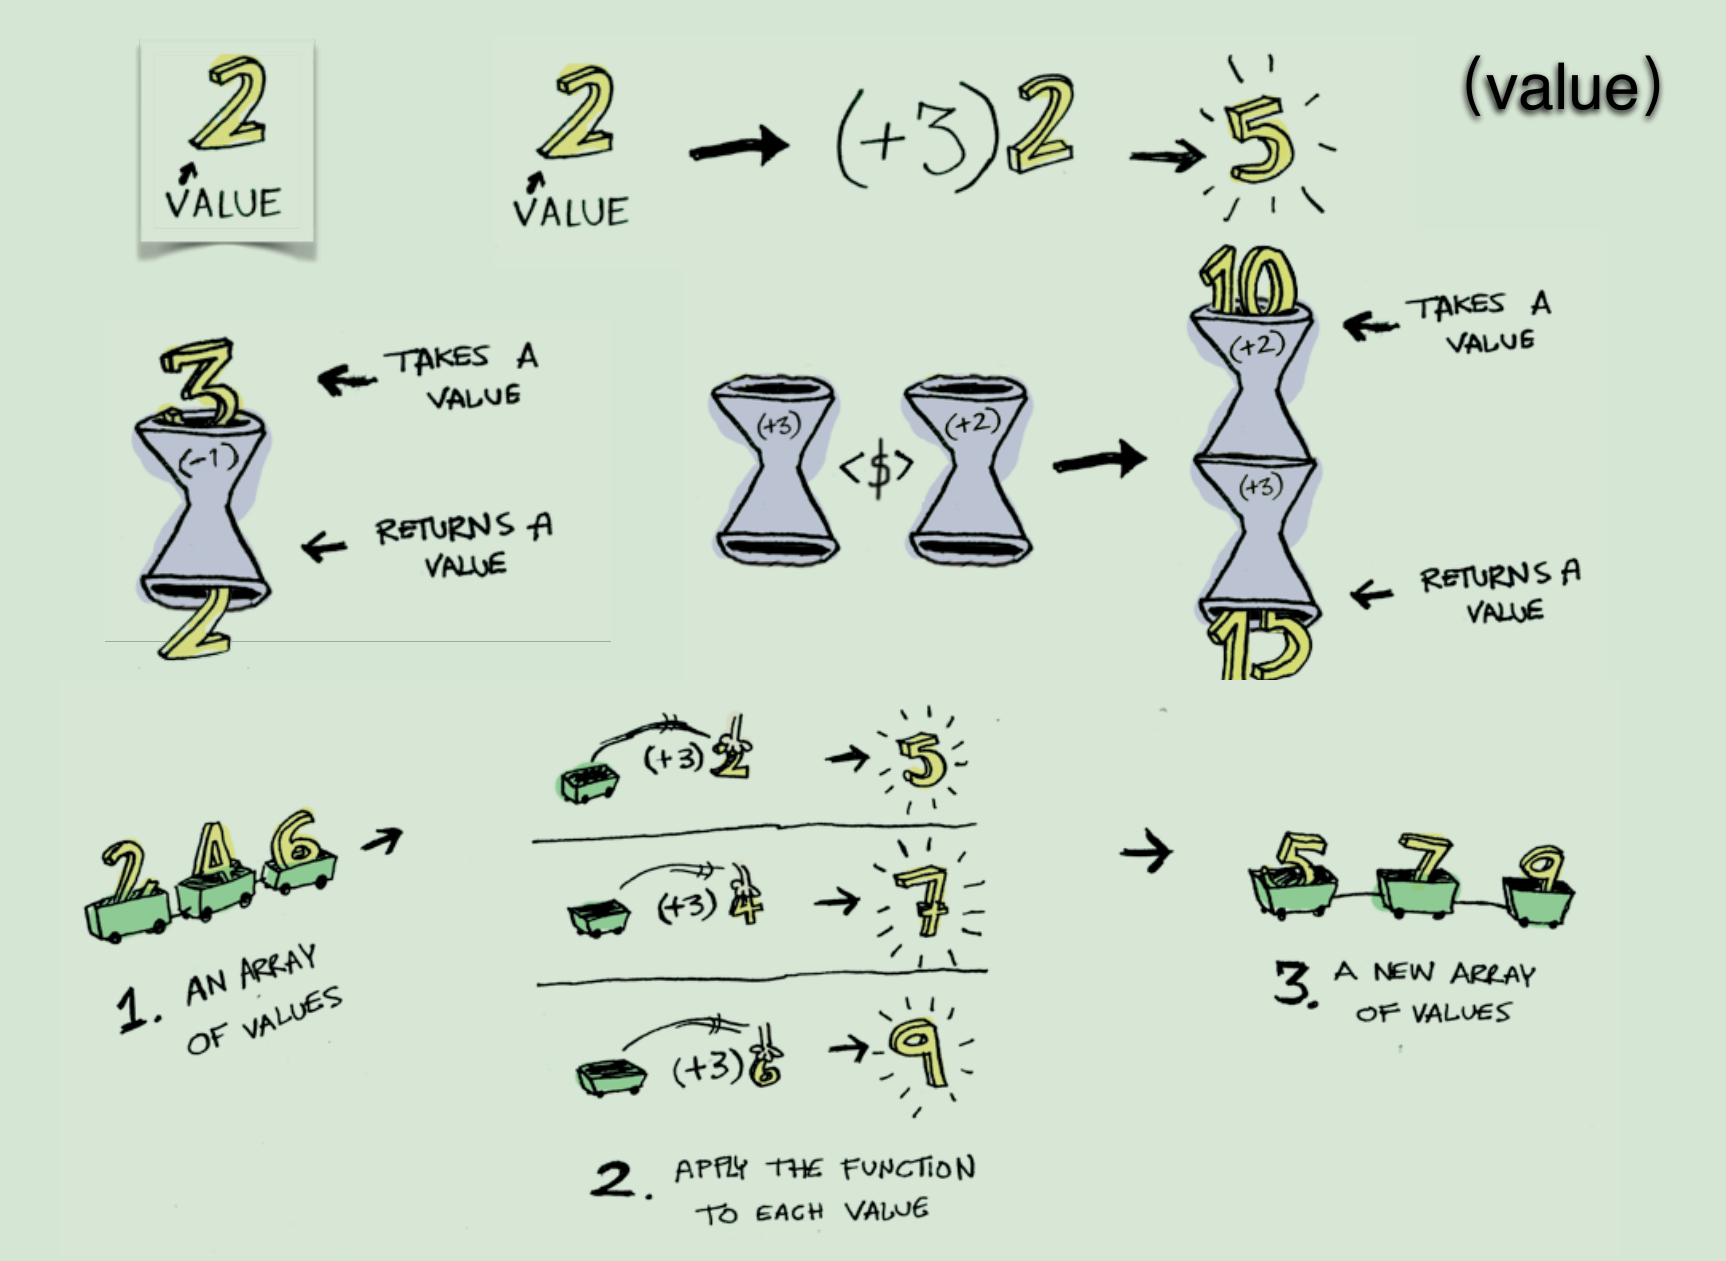 (value)
2
VALUE
2
VALUE
(+3)2
5
3
(-1)
2
TAKES A
VALUE
RETURNS A
VALUE
(+3)
<$>
(+2)
10
(+2)
(+3)
15
TAKES A
VALUE
RETURNS A
VALUE
2 4 6
1. AN ARRAY
OF VALUES
(+3) 2
5
(+3) 4
7
(+3) 6
9
2. APPLY THE FUNCTION
TO EACH VALUE
5 7 9
3. A NEW ARRAY
OF VALUES